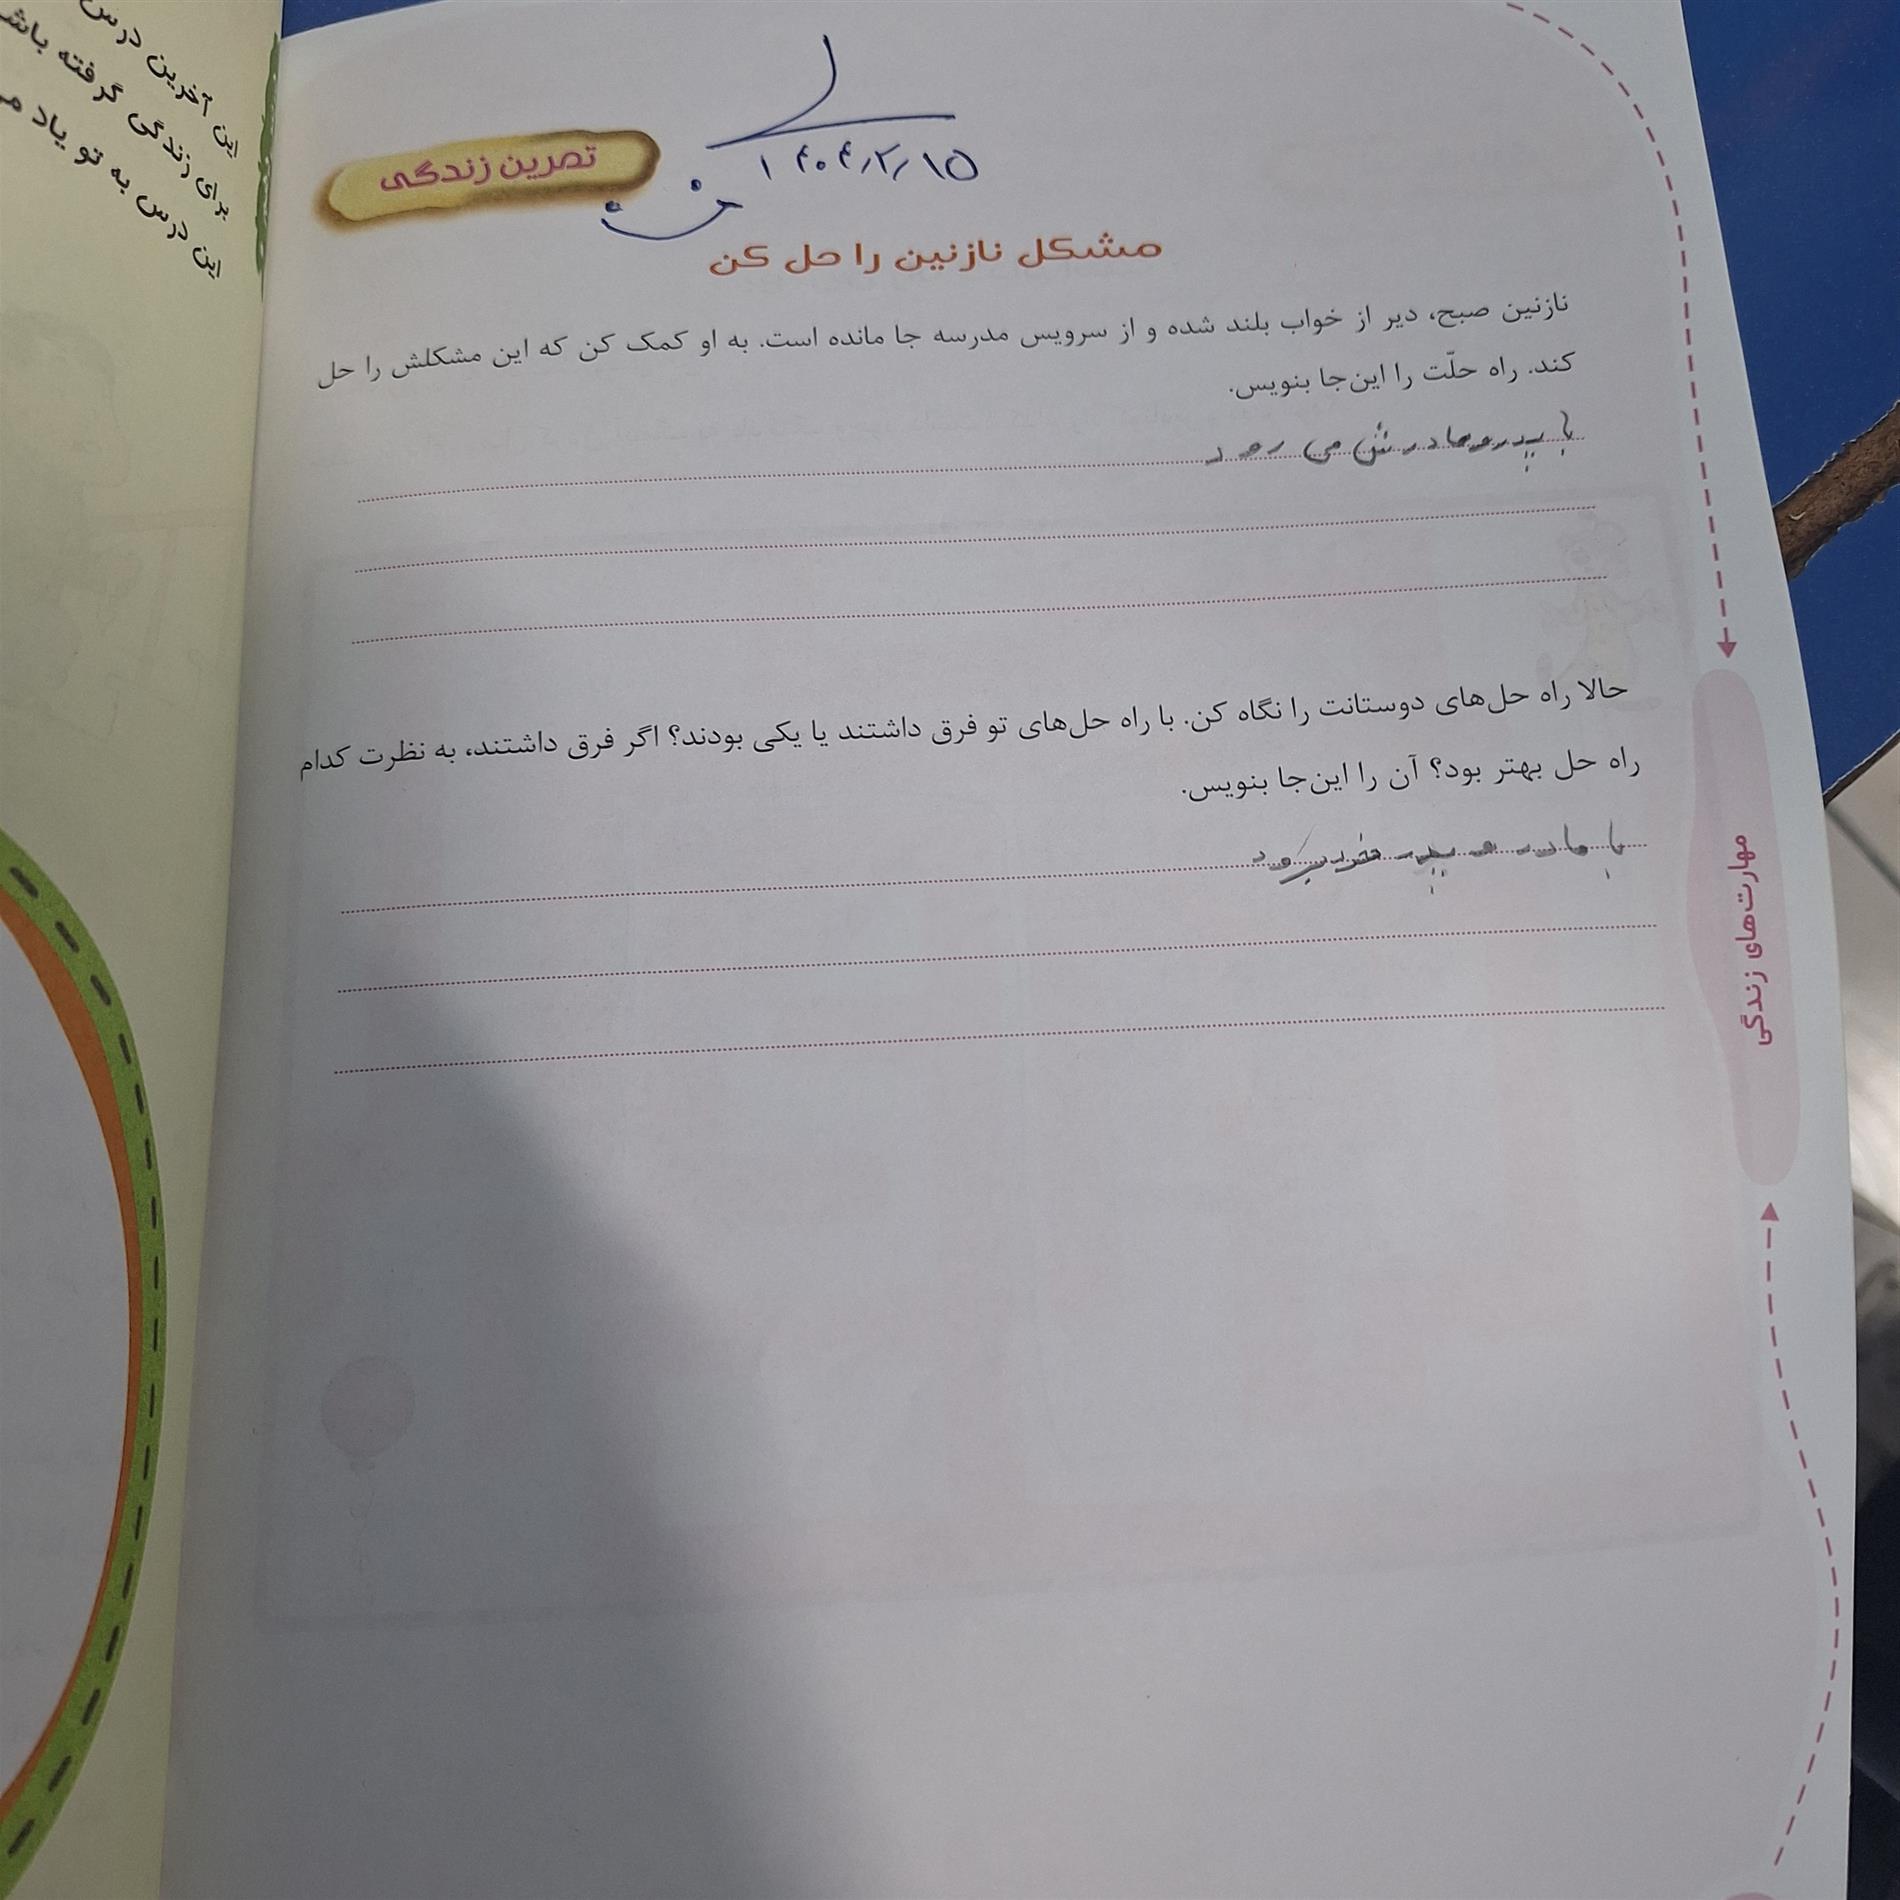 ۱۴۰۴/۲/۱۵
تمرین زندگی
مشکل نازنین را حل کن
نازنین صبح، دیر از خواب بلند شده و از سرویس مدرسه جا مانده است. به او کمک کن که این مشکلش را حل
کند. راه حلّت را این‌جا بنویس.
با پدر و مادرش می رود
حالا راه حل‌های دوستانت را نگاه کن. با راه حل‌های تو فرق داشتند یا یکی بودند؟ اگر فرق داشتند، به نظرت کدام
راه حل بهتر بود؟ آن را این‌جا بنویس.
با مادر و پدر خود برود
مهارت‌های زندگی
این آخرین درس
برای زندگی گرفته
این درس به تو یاد